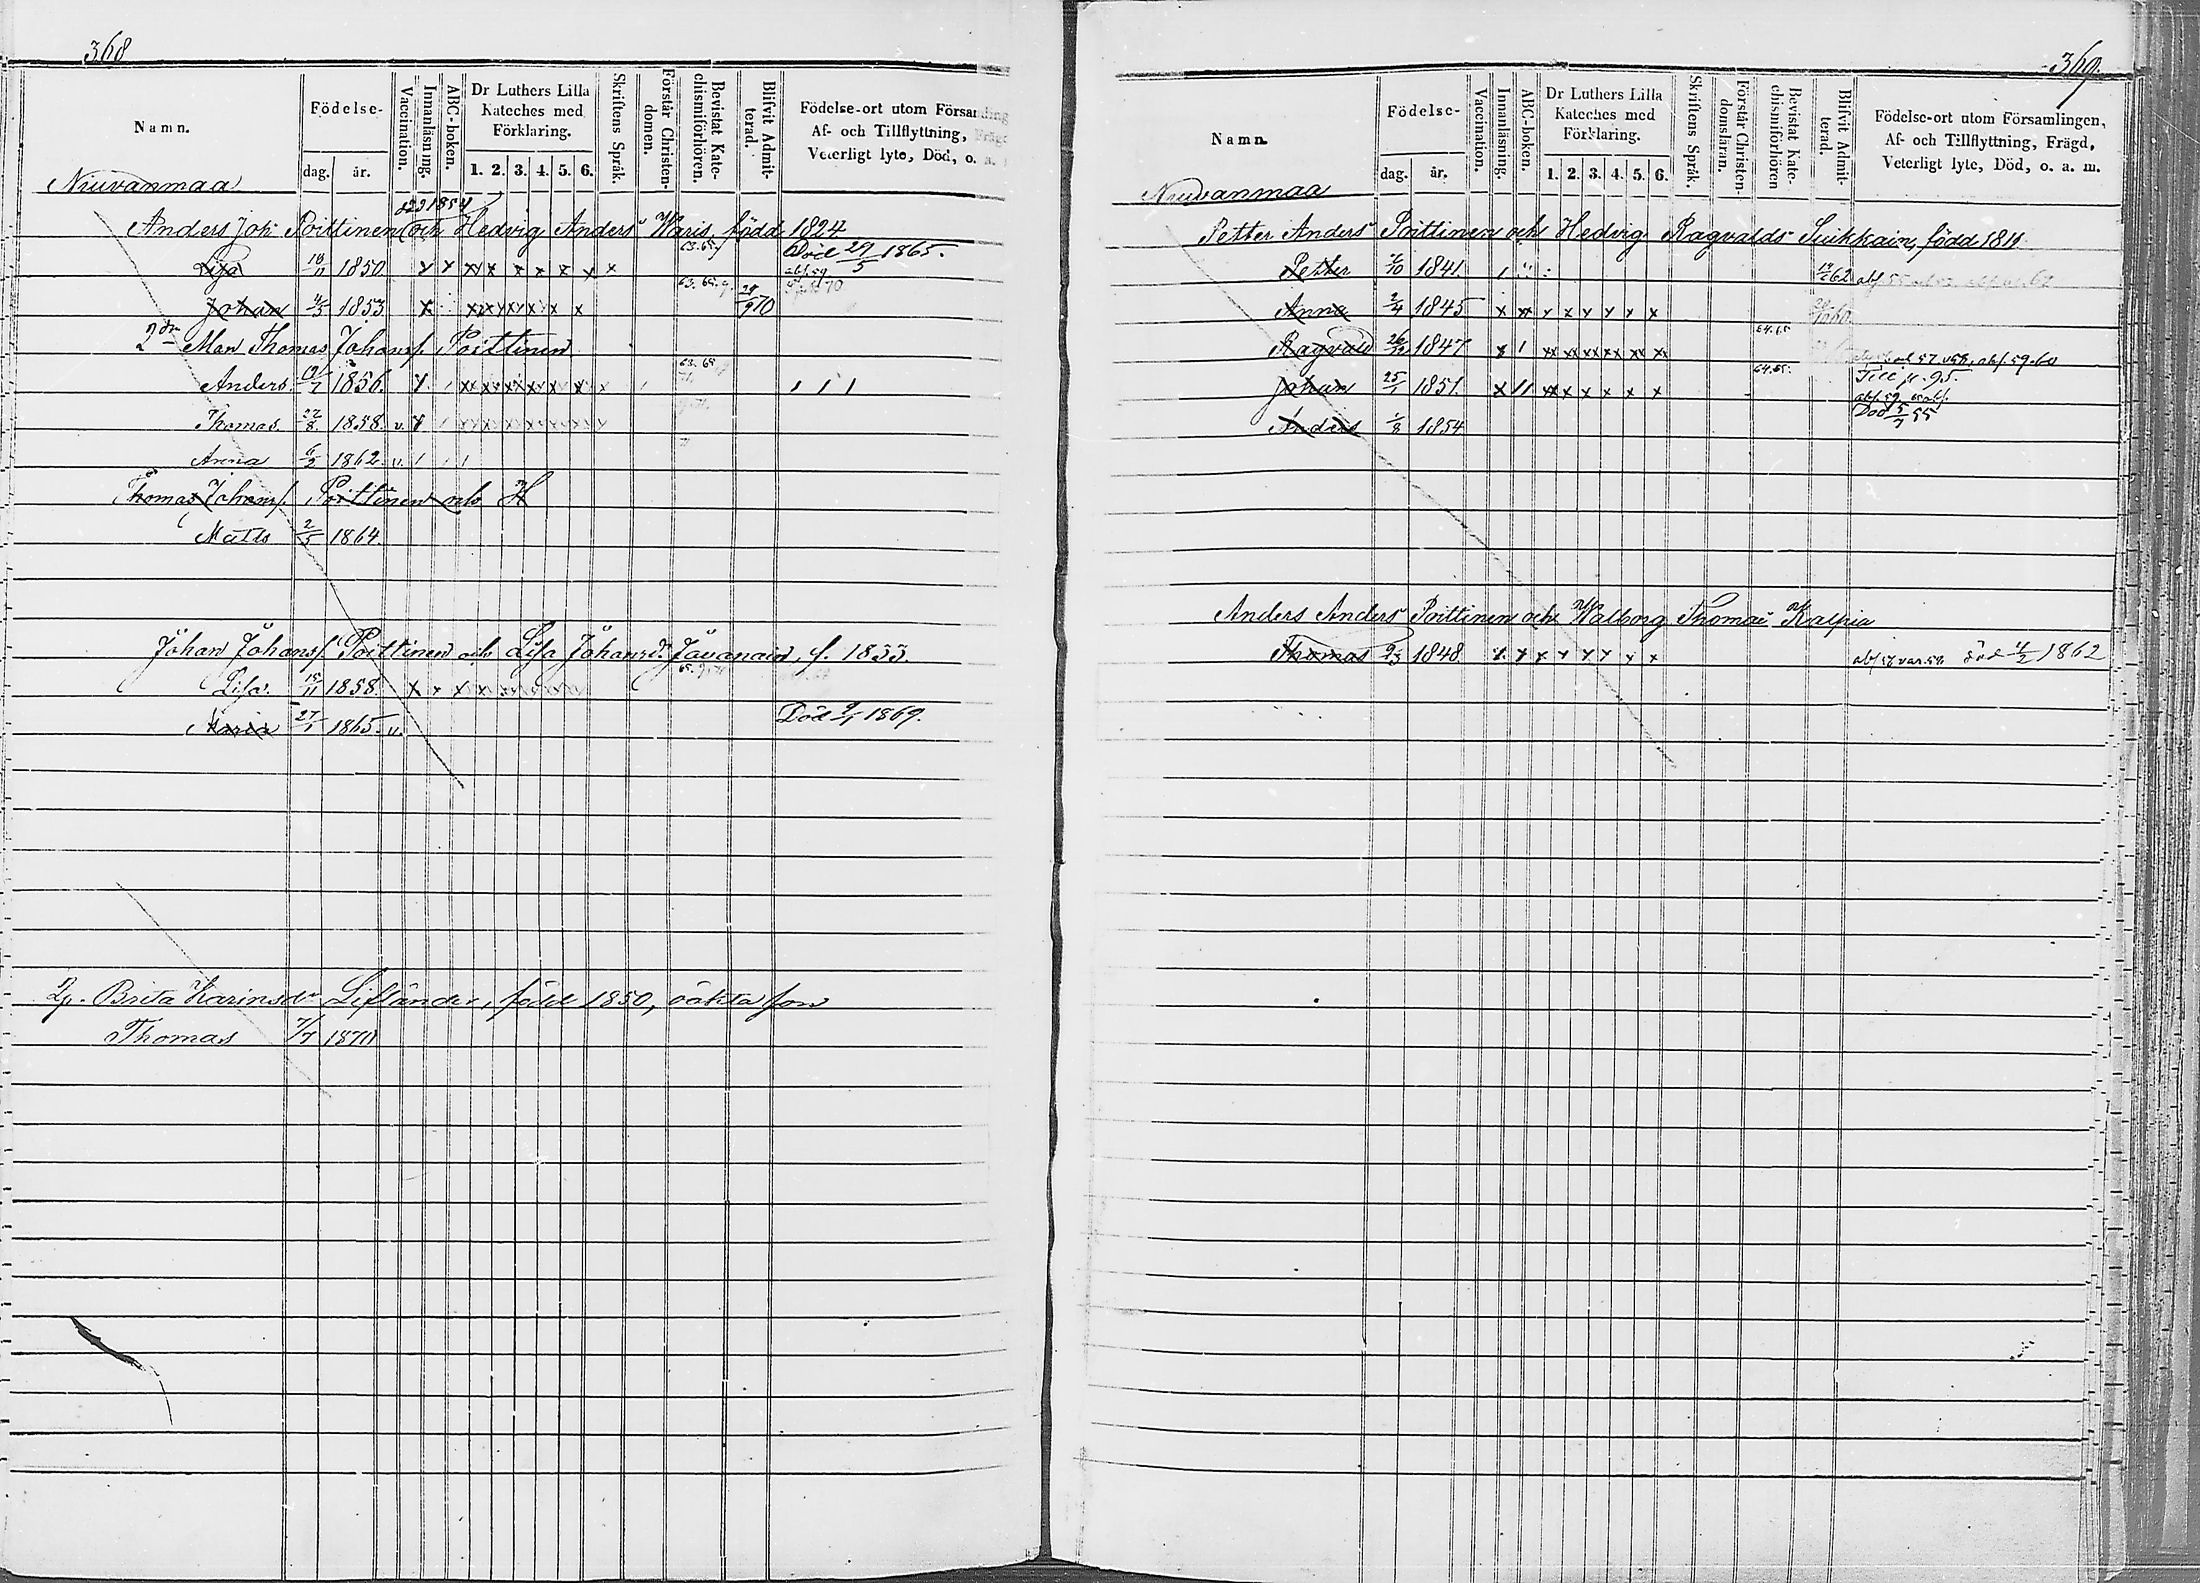 368
Namn.
Födelse-
dag. år.
Vaccination.
Innanläsning.
ABC-boken.
Dr Luthers Lilla Kateches med Förklaring.
1. 2. 3. 4. 5. 6.
Skriftens Språk.
Förstår Christendomen.
Bevistat Katechismiförhören.
Blifvit Admitterad.
Födelse-ort utom Försam
Af- och Tillflyttning,
Veterligt lyte, Död, o. a.
Niuvanmaa
1854
Anders Joh: Poittinen och Hedvig Anders Waris, född 1824
Lisa 18/11 1850 63.65. Död 29/5 1865.
Johan 4/5 1853 63.65. 24/9 70
2dra Man Thomas Johanss. Poittinen
Anders 1856. 63.65
Thomas 22/8 1858. v.
Anna 6/2 1862 v.
Thomas Johanss. Poittinen och H
Matts 2/5 1864.
Johan Johanss. Poittinen och Lisa Johansdr Jävanain, f. 1833.
Lisa. 15/11 1858. 65.
Maria 27/1 1865. v. Död 9/1 1869.
Brita Karinsdr Liflander, född 1850, oäkta son
Thomas 7/7 1870
369.
Namn.
Födelse-
dag. år.
Vaccination.
Innanläsning.
ABC-boken.
Dr Luthers Lilla Kateches med Förklaring.
1. 2. 3. 4. 5. 6.
Skriftens Språk.
Förstår Christendomsläran.
Bevistat Katechismiförhören
Blifvit Admitterad.
Födelse-ort utom Församlingen,
Af- och Tillflyttning, Frägd,
Veterligt lyte, Död, o. a. m.
Niuvanmaa
Petter Anders Poittinen och Hedvig Ragvalds Suikkain, född 1811
Petter 1841. 62
Anna 2/4 1845
Ragvald 26/12 1847 64.65 57. 58. abs. 59. 60
Johan 25/1 1851. 64.65. Till p. 95.
Anders 1/8 1854 Död 5/7 55
Anders Anders Poittinen och Walborg Thomas Kalpia
Thomas 9/3 1848 död 4/2 1862